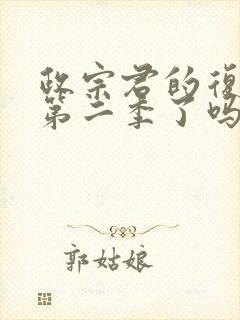 政宗君的復
第二季了吗
郭姑娘